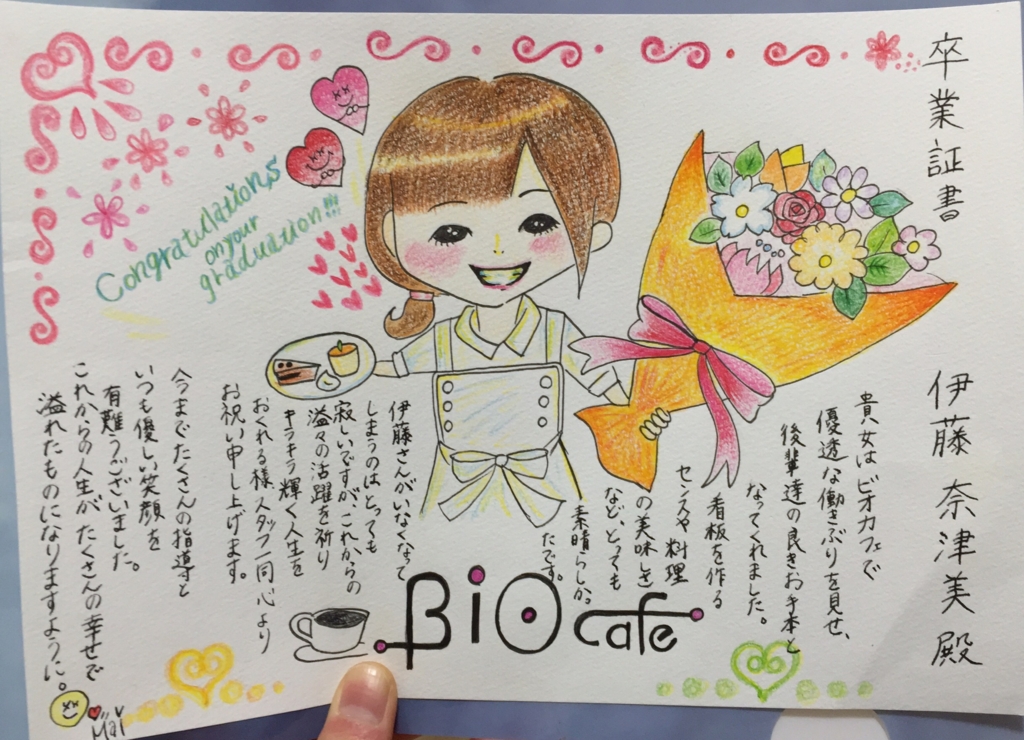 卒業証書
伊藤 奈津美 殿
貴女はビオカフェで
優秀な働きぶりを見せ、
後輩達の良きお手本と
なってくれました。
看板を作る
センスや料理
の美味しさ
など、とっても
素晴らしか
たです。
伊藤さんがいなくなって
しまうのはとっても
寂しいですが、これからの
溢々の活躍を祈り
キラキラ輝く人生を
おくれる様スタッフ一同心より
お祝い申し上げます。
今までたくさんの指導と
いつも優しい笑顔を
有難うございました。
これからの人生がたくさんの幸せで
溢れたものになりますように。
Mai
Congratulations
on your
graduation!!!
BiO cafe